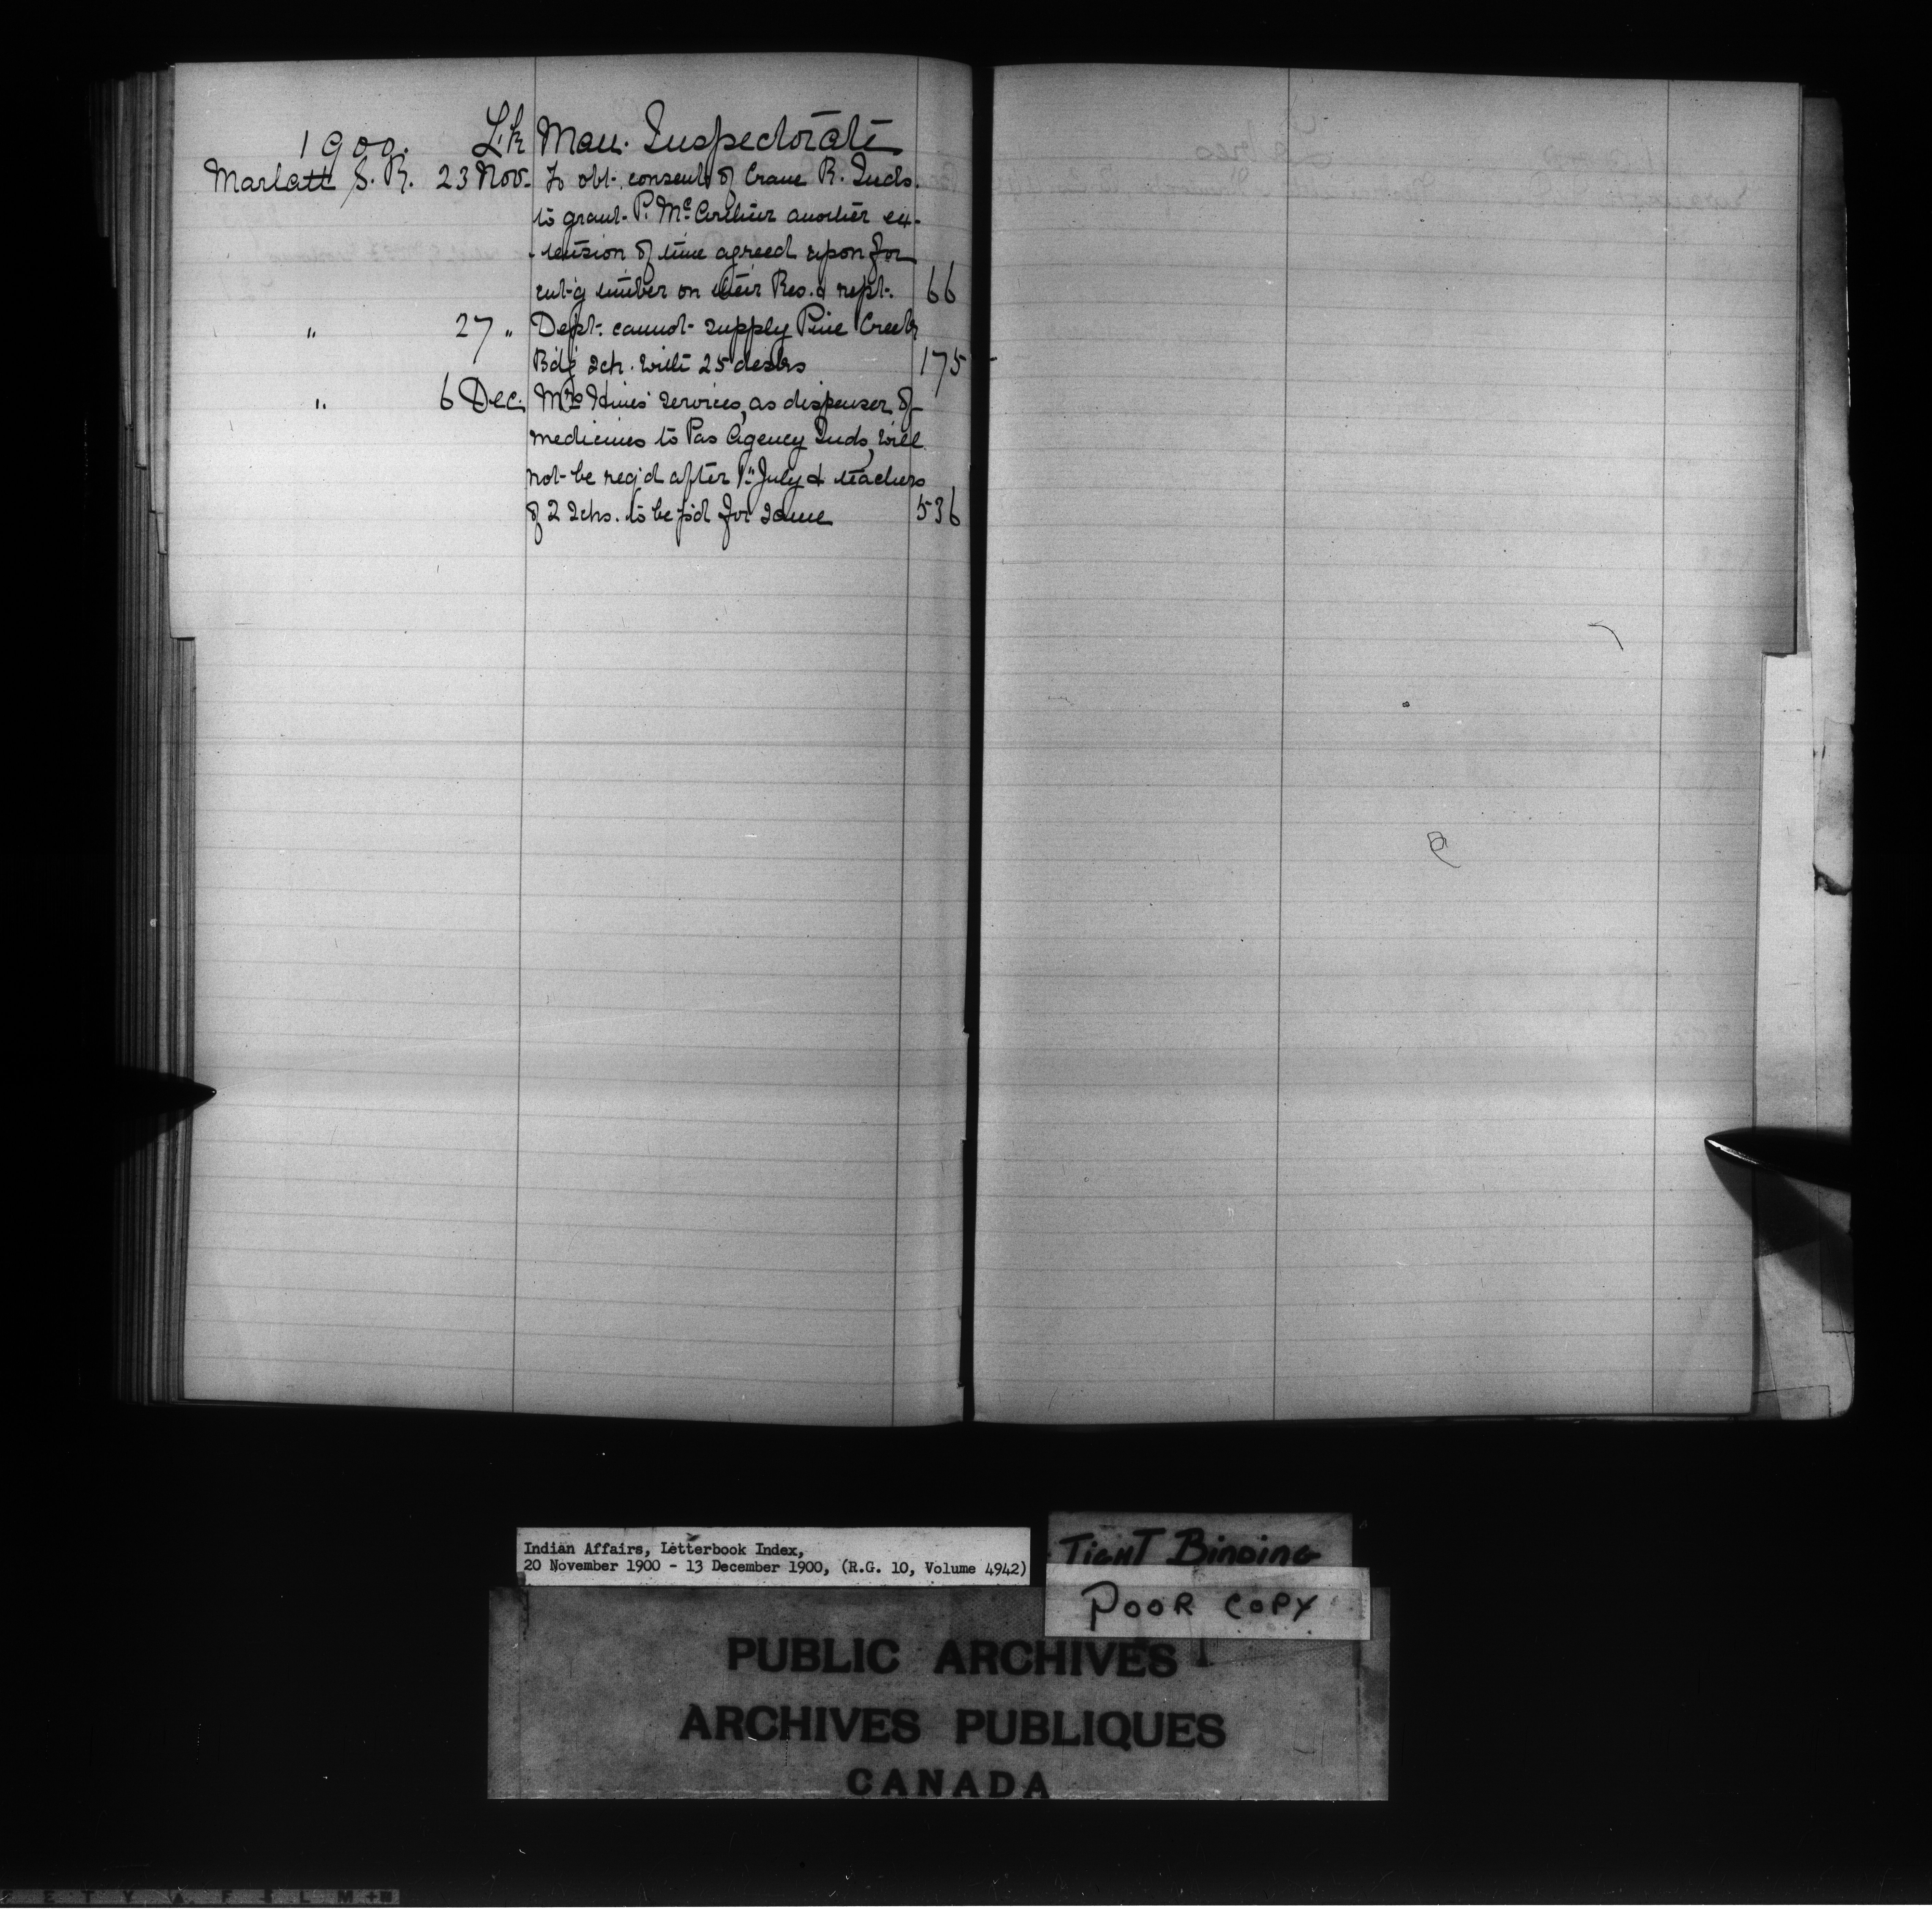 1900. Lk Man. Inspectorate
Marlatt S. R. 23 Nov. To obt. consent of Crane R. Inds.
to grant P. McArthur another ex-
-tension of time agreed upon for
cut'g timber on their Res. & rept. 66
" 27 " Dept. cannot supply Pine Creek
Bd'g Sch. with 25 desks 175
" 6 Dec. Mrs Hines' services, as dispenser of
medicines to Pas Agency Inds, will
not be req'd after 1st July & teachers
of 2 Schs. to be p'd for same 536
Indian Affairs, Letterbook Index,
20 November 1900 - 13 December 1900, (R.G. 10, Volume 4942)
TIGHT BINDING
POOR COPY
PUBLIC ARCHIVES
ARCHIVES PUBLIQUES
CANADA
E T Y A F I L M